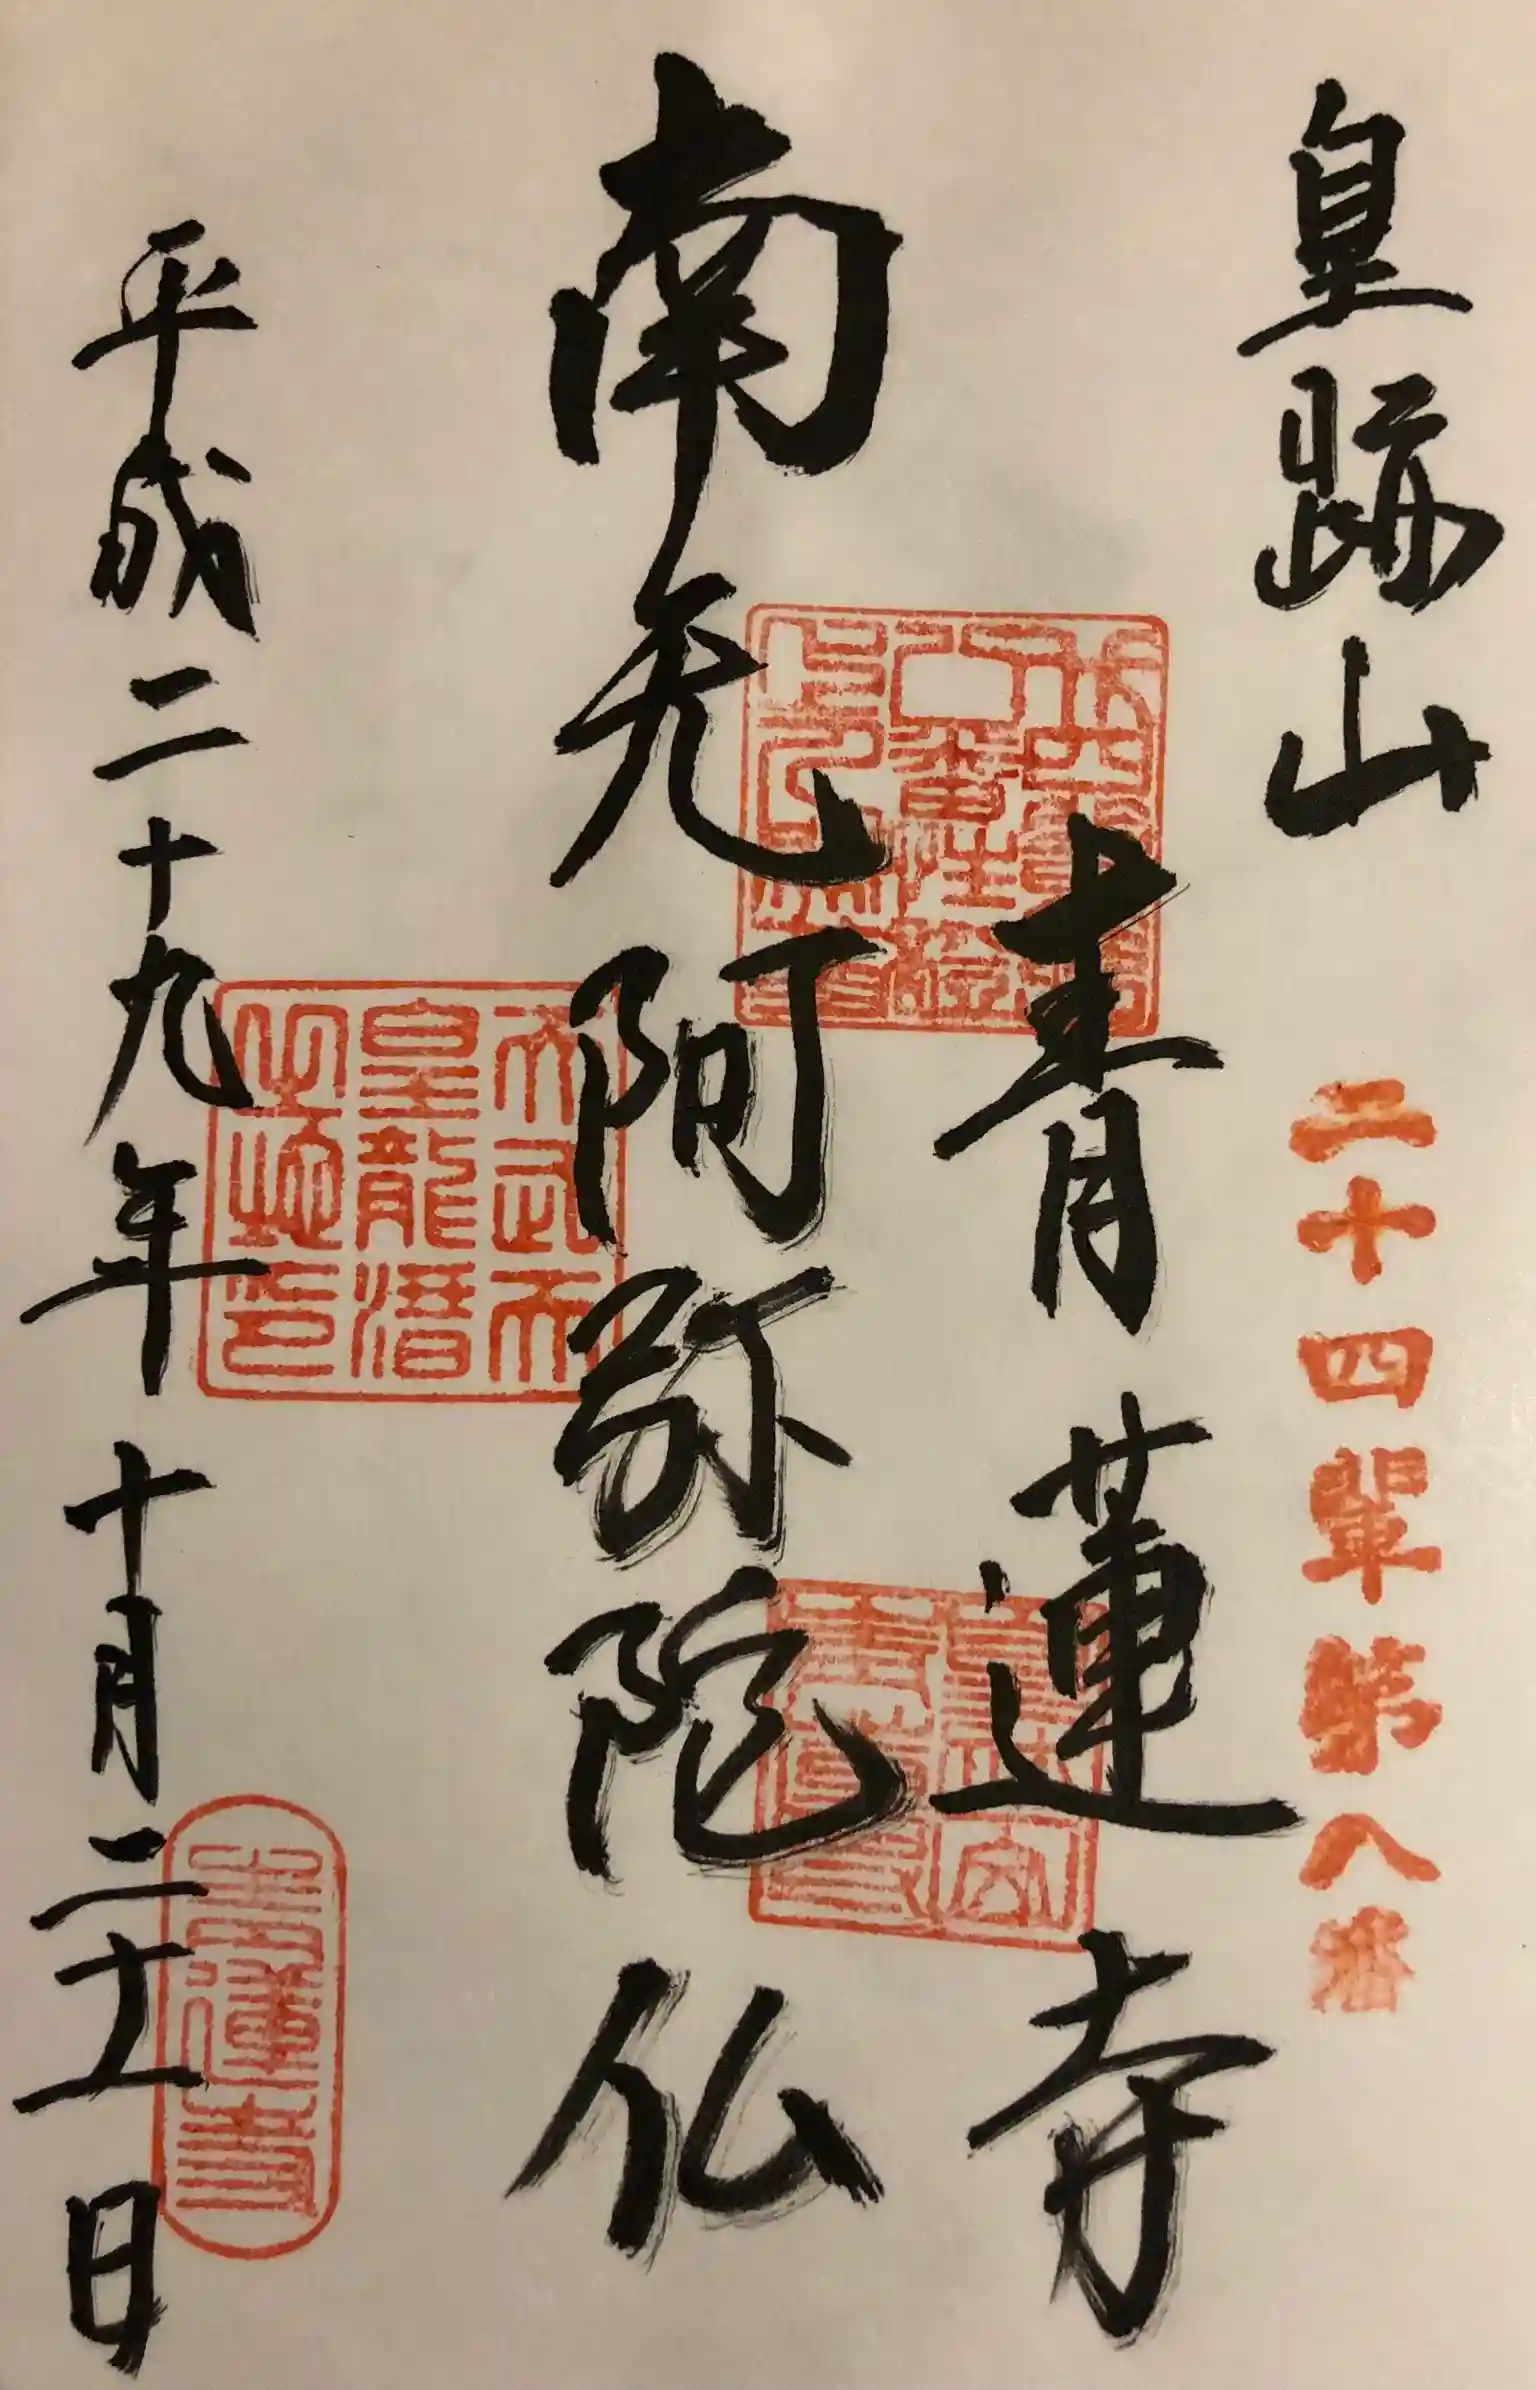 皇跡山
二十四輩第八番
青蓮寺
南无阿弥陀仏
天武天
皇龍潜
平成二十九年十月二十一日
青蓮寺